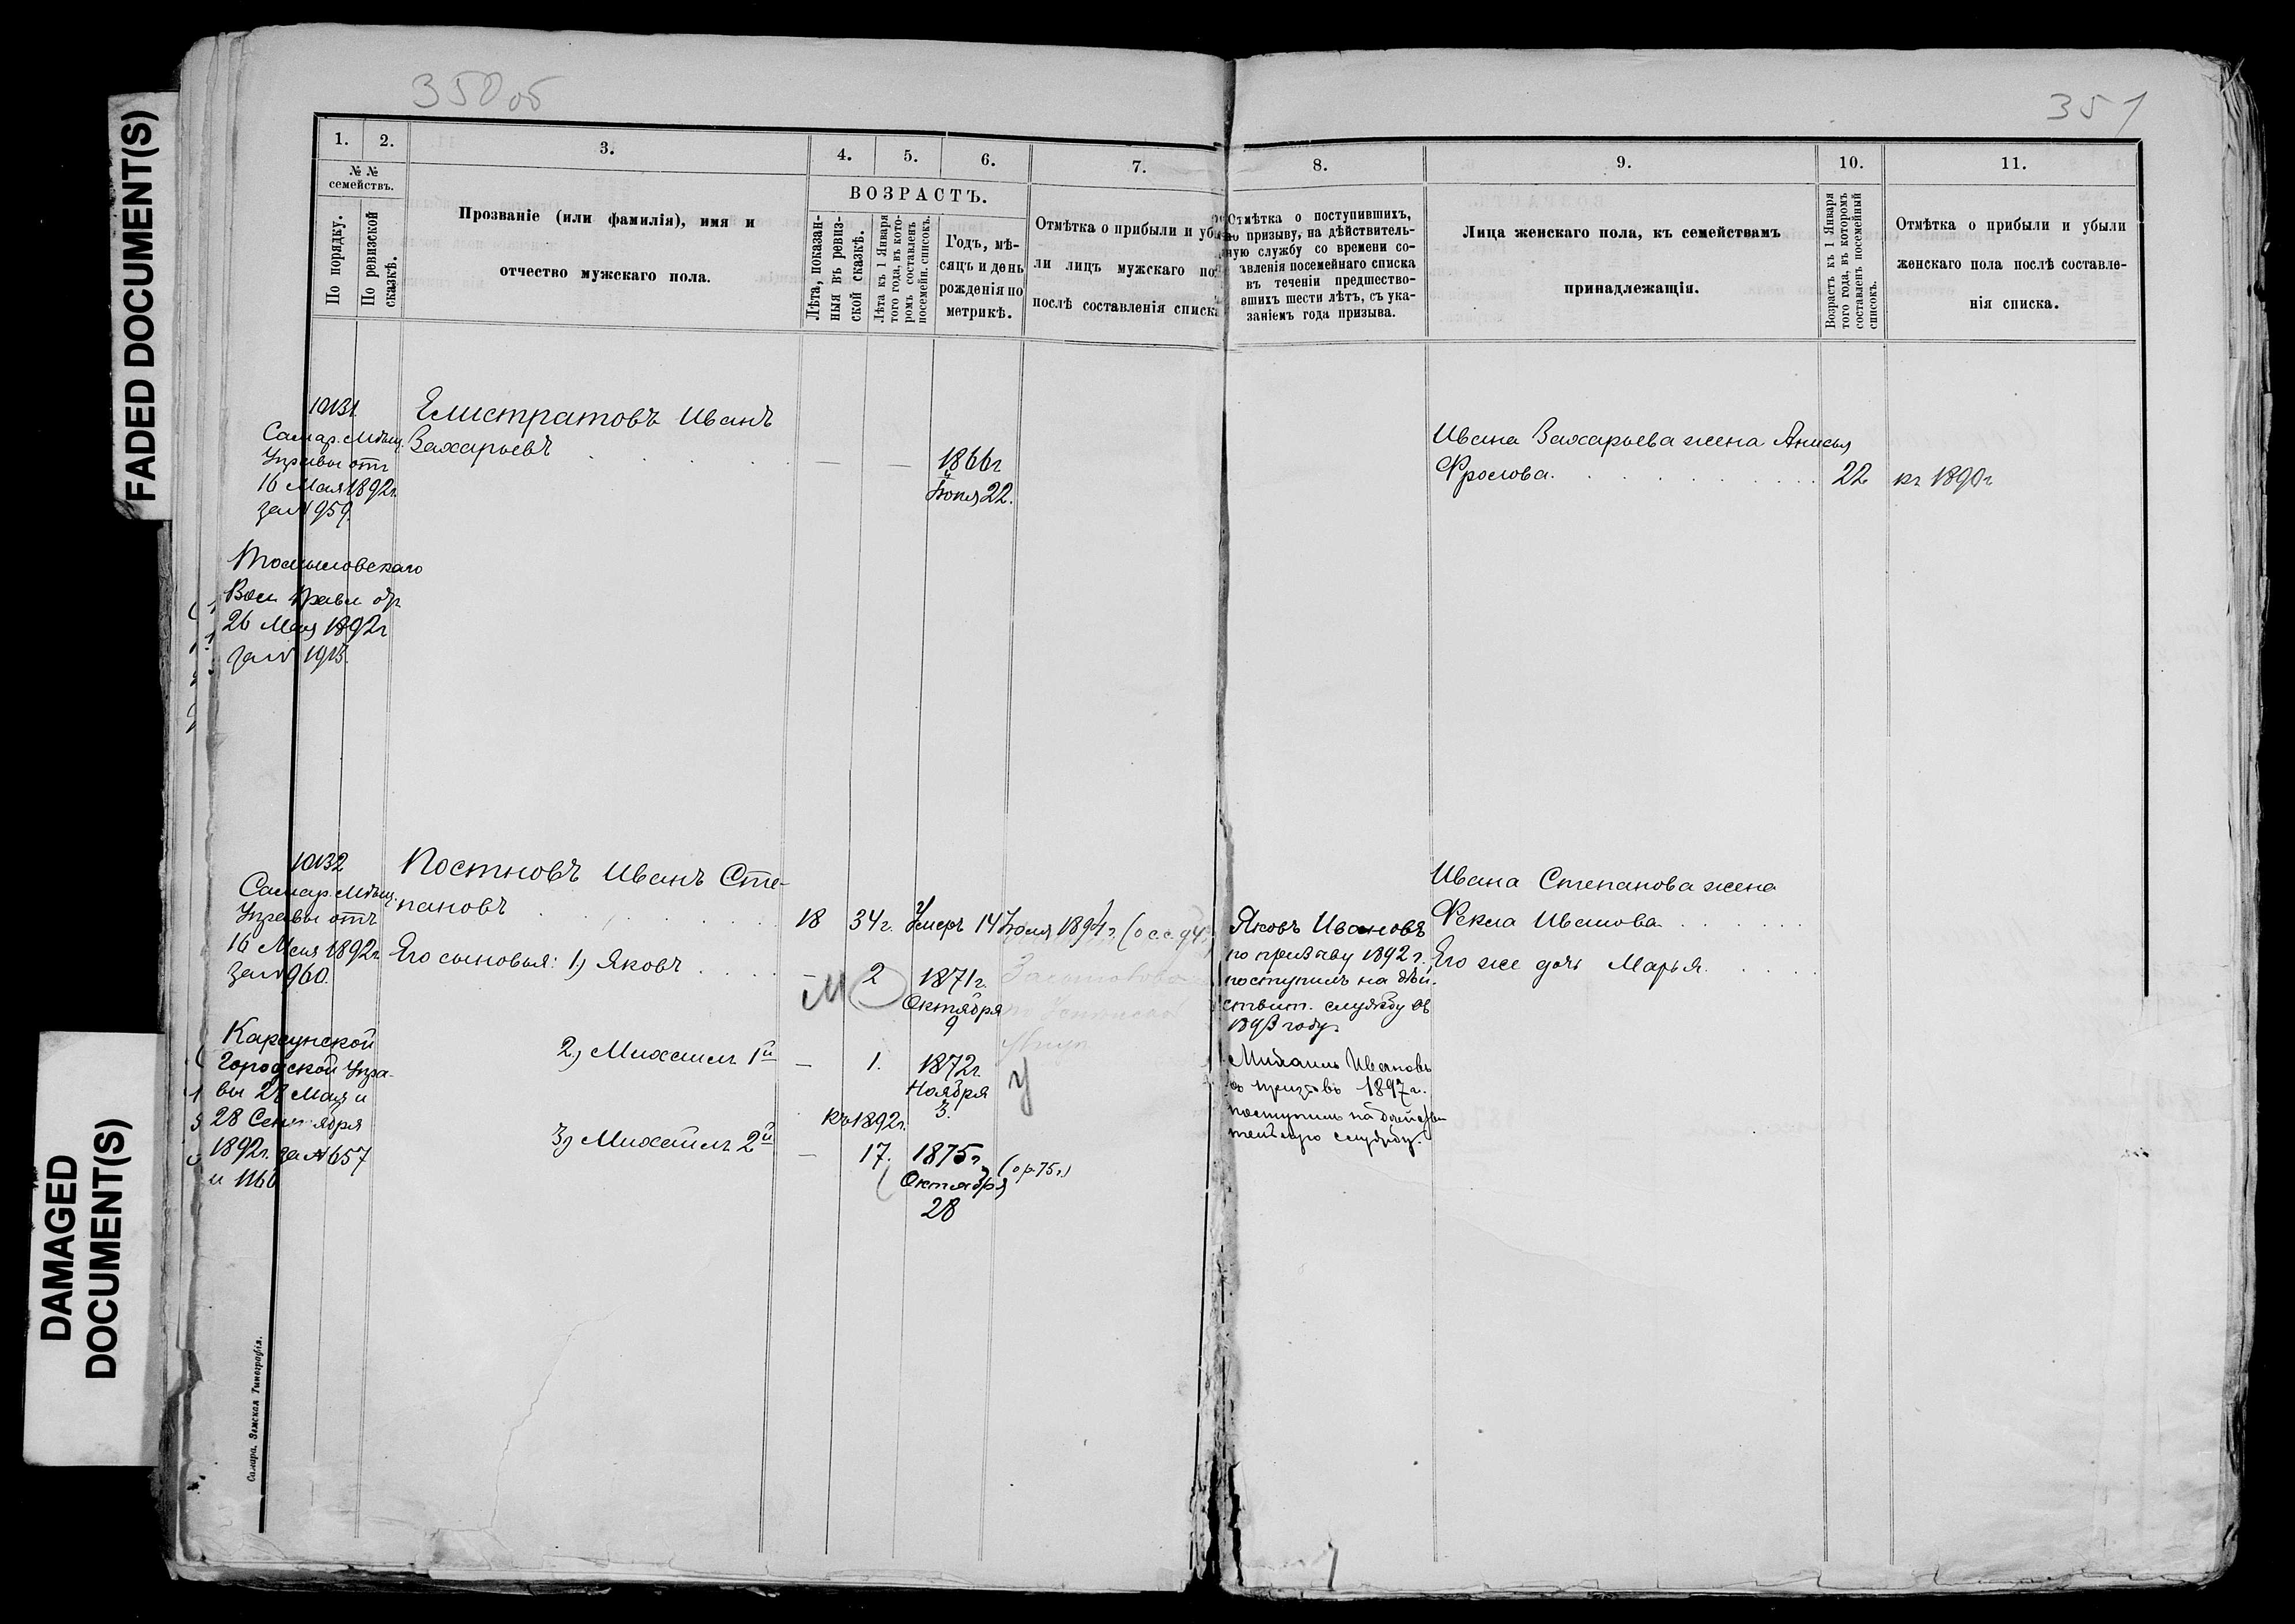 FADED DOCUMENT(S)
DAMAGED
DOCUMENT(S)
350 об
1.
2.
3.
4.
5.
6.
7.
№ №
семействъ.
По порядку.
По ревизской
сказкѣ.
Прозваніе (или фамилія), имя и
отчество мужскаго пола.
ВОЗРАСТЪ.
Лѣта, показан-
ныя въ ревиз-
ской сказкѣ.
Лѣта къ 1 Января
того года, въ кото-
ромъ составленъ
посемейн. списокъ.
Годъ, мѣ-
сяцъ и день
рожденія по
метрикѣ.
Отмѣтка о прибыли и убы
ли лицъ мужскаго по
послѣ составленія списк
10131
Самар. Мѣщ.
Управы отъ
16 Мая 1892г.
за № 959.
Томыловскаго
Вол. Правл. отъ
26 Мая 1892г
за № 1915.
Елистратовъ Иванъ
Захарьевъ
— —
1866г
Іюня 22.
10132
Самар. Мѣщ.
Управы отъ
16 Мая 1892г.
за № 960.
Карсунской
Городской Упра-
вы 27 Мая и
28 Сентября
1892г. за № 657
и 1166
Постновъ Иванъ Сте-
пановъ
18 34г. Умеръ 14 Іюля 1894г. (о с.с. 94
Его сыновья: 1) Яковъ
— 2 1871г.
Октября
9
2) Михаилъ 1й — 1. 1872г.
Ноября
3.
У
Къ 1892г.
3) Михаилъ 2й — 17. 1875г. (о р. 75г.)
Октября
28
Самара. Земская Типографія.
351
8.
9.
10.
11.
Отмѣтка о поступившихъ,
по призыву, на дѣйствитель-
ную службу со времени со-
авленія посемейнаго списка
въ теченіи предшество-
вшихъ шести лѣтъ, съ ука-
заніемъ года призыва.
Лица женскаго пола, къ семействамъ
принадлежащія.
Возрастъ къ 1 Января
того года, въ которомъ
составленъ посемейный
списокъ.
Отмѣтка о прибыли и убыли
женскаго пола послѣ составле-
нія списка.
Ивана Захарьева жена Анисья
Фролова. 22 къ 1890г
Яковъ Ивановъ
по призыву 1892г.
поступилъ на дѣй-
ствит. службу въ
1893 году.
Михаилъ Ивановъ
въ призывъ 1897г.
поступилъ на дѣйстви
тельную службу.
Ивана Степанова жена
Фекла Иванова
Его же дочь Марья